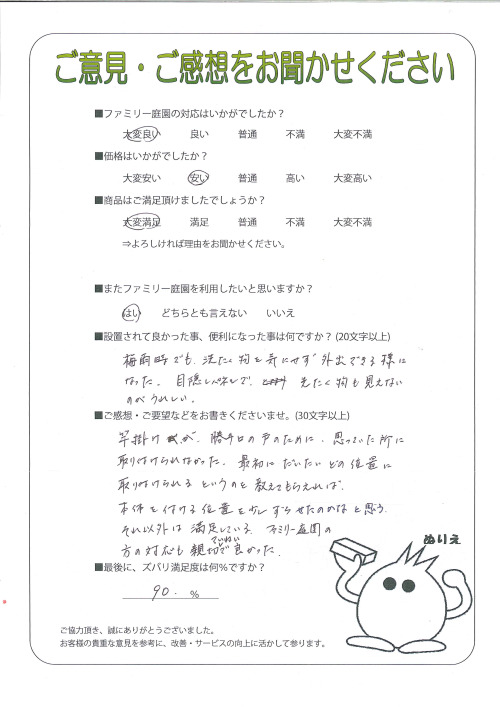 ご意見・ご感想をお聞かせください
■ファミリー庭園の対応はいかがでしたか？
大変良い 良い 普通 不満 大変不満
■価格はいかがでしたか？
大変安い 安い 普通 高い 大変高い
■商品はご満足頂けましたでしょうか？
大変満足 満足 普通 不満 大変不満
⇒よろしければ理由をお聞かせください。
■またファミリー庭園を利用したいと思いますか？
はい どちらとも言えない いいえ
■設置されて良かった事、便利になった事は何ですか？(20文字以上)
梅雨時でも、洗たく物を気にせず外出できる様に
なった。目隠しパネルで、洗たく物も見えない
のがうれしい。
■ご感想・ご要望などをお書きくださいませ。(30文字以上)
竿掛けが、勝手口の戸のために、思っていた所に
取り付けられなかった。最初にだいたいどの位置に
取り付けられるというのを教えてもらえれば、
本体を付ける位置を少しずらせたのかなと思う。
それ以外は満足している。ファミリー庭園の
方の対応も親切でていねいで良かった。
■最後に、ズバリ満足度は何％ですか？
90. ％
ぬりえ
ご協力頂き、誠にありがとうございました。
お客様の貴重な意見を参考に、改善・サービスの向上に活かして参ります。